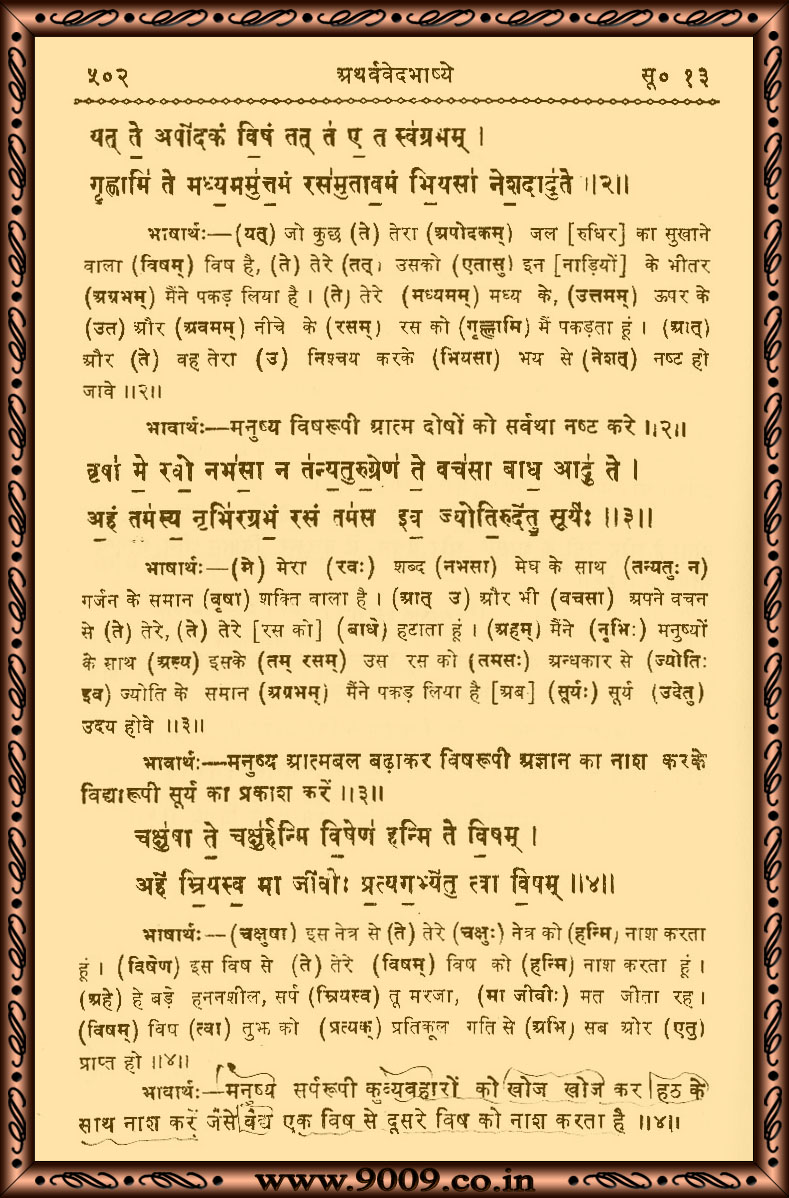 ५०२ अथर्ववेदभाष्ये सू० १३
यत् ते॒ अपो॑दकं वि॒षं तत् त॑ ए॒ तास्व॑ग्रभम् ।
गृ॒ह्णामि॑ ते मध्य॒ममु॑त्त॒मं रस॑मु॒ताव॒मं भि॒यसा॑ नेश॒दादु॑ ते ॥२॥
भाषार्थः—(यत्) जो कुछ (ते) तेरा (अपोदकम्) जल [रुधिर] का सुखाने
वाला (विषम्) विष है, (ते) तेरे (तत्) उसको (एतासु) इन [नाड़ियों] के भीतर
(अग्रभम्) मैंने पकड़ लिया है । (ते) तेरे (मध्यमम्) मध्य के, (उत्तमम्) ऊपर के
(उत) और (अवमम्) नीचे के (रसम्) रस को (गृह्णामि) मैं पकड़ता हूं । (आत्)
और (ते) वह तेरा (उ) निश्चय करके (भियसा) भय से (नेशत्) नष्ट हो
जावे ॥२॥
भावार्थः—मनुष्य विषरूपी आत्म दोषों को सर्वथा नष्ट करे ॥२॥
वृषा॑ मे॒ रवो॒ नभ॑सा॒ न त॑न्य॒तुरु॒ग्रेण॑ ते॒ वच॑सा बाध॒ आदु॑ ते ।
अ॒हं तम॑स्य॒ नृभि॑रग्रभं॒ रसं॒ तम॑स इव॒ ज्योति॒रुदे॑तु॒ सूर्यः॑ ॥३॥
भाषार्थः—(मे) मेरा (रवः) शब्द (नभसा) मेघ के साथ (तन्यतुः न)
गर्जन के समान (वृषा) शक्ति वाला है । (आत् उ) और भी (वचसा) अपने वचन
से (ते) तेरे, (ते) तेरे [रस को] (बाधे) हटाता हूं । (अहम्) मैंने (नृभिः) मनुष्यों
के साथ (अस्य) इसके (तम् रसम्) उस रस को (तमसः) अन्धकार से (ज्योतिः
इव) ज्योति के समान (अग्रभम्) मैंने पकड़ लिया है [अब] (सूर्यः) सूर्य (उदेतु)
उदय होवे ॥३॥
भावार्थः—मनुष्य आत्मबल बढ़ाकर विषरूपी अज्ञान का नाश करके
विद्यारूपी सूर्य का प्रकाश करें ॥३॥
चक्षु॑षा ते॒ चक्षु॑र्हन्मि वि॒षेण॑ हन्मि ते वि॒षम् ।
अहे॑ म्रि॒यस्व॒ मा जी॑वीः प्र॒त्यग॒भ्ये॑तु त्वा वि॒षम् ॥४॥
भाषार्थः—(चक्षुषा) इस नेत्र से (ते) तेरे (चक्षुः) नेत्र को (हन्मि) नाश करता
हूं । (विषेण) इस विष से (ते) तेरे (विषम्) विष को (हन्मि) नाश करता हूं ।
(अहे) हे बड़े हननशील, सर्प (म्रियस्व) तू मरजा, (मा जीवीः) मत जीता रह ।
(विषम्) विष (त्वा) तुझ को (प्रत्यक्) प्रतिकूल गति से (अभि) सब ओर (एतु)
प्राप्त हो ॥४॥
भावार्थः—मनुष्य सर्परूपी कुव्यवहारों को खोज खोज कर हठ के
साथ नाश करें जैसे वैद्य एक विष से दूसरे विष को नाश करता है ॥४॥
www.9009.co.in